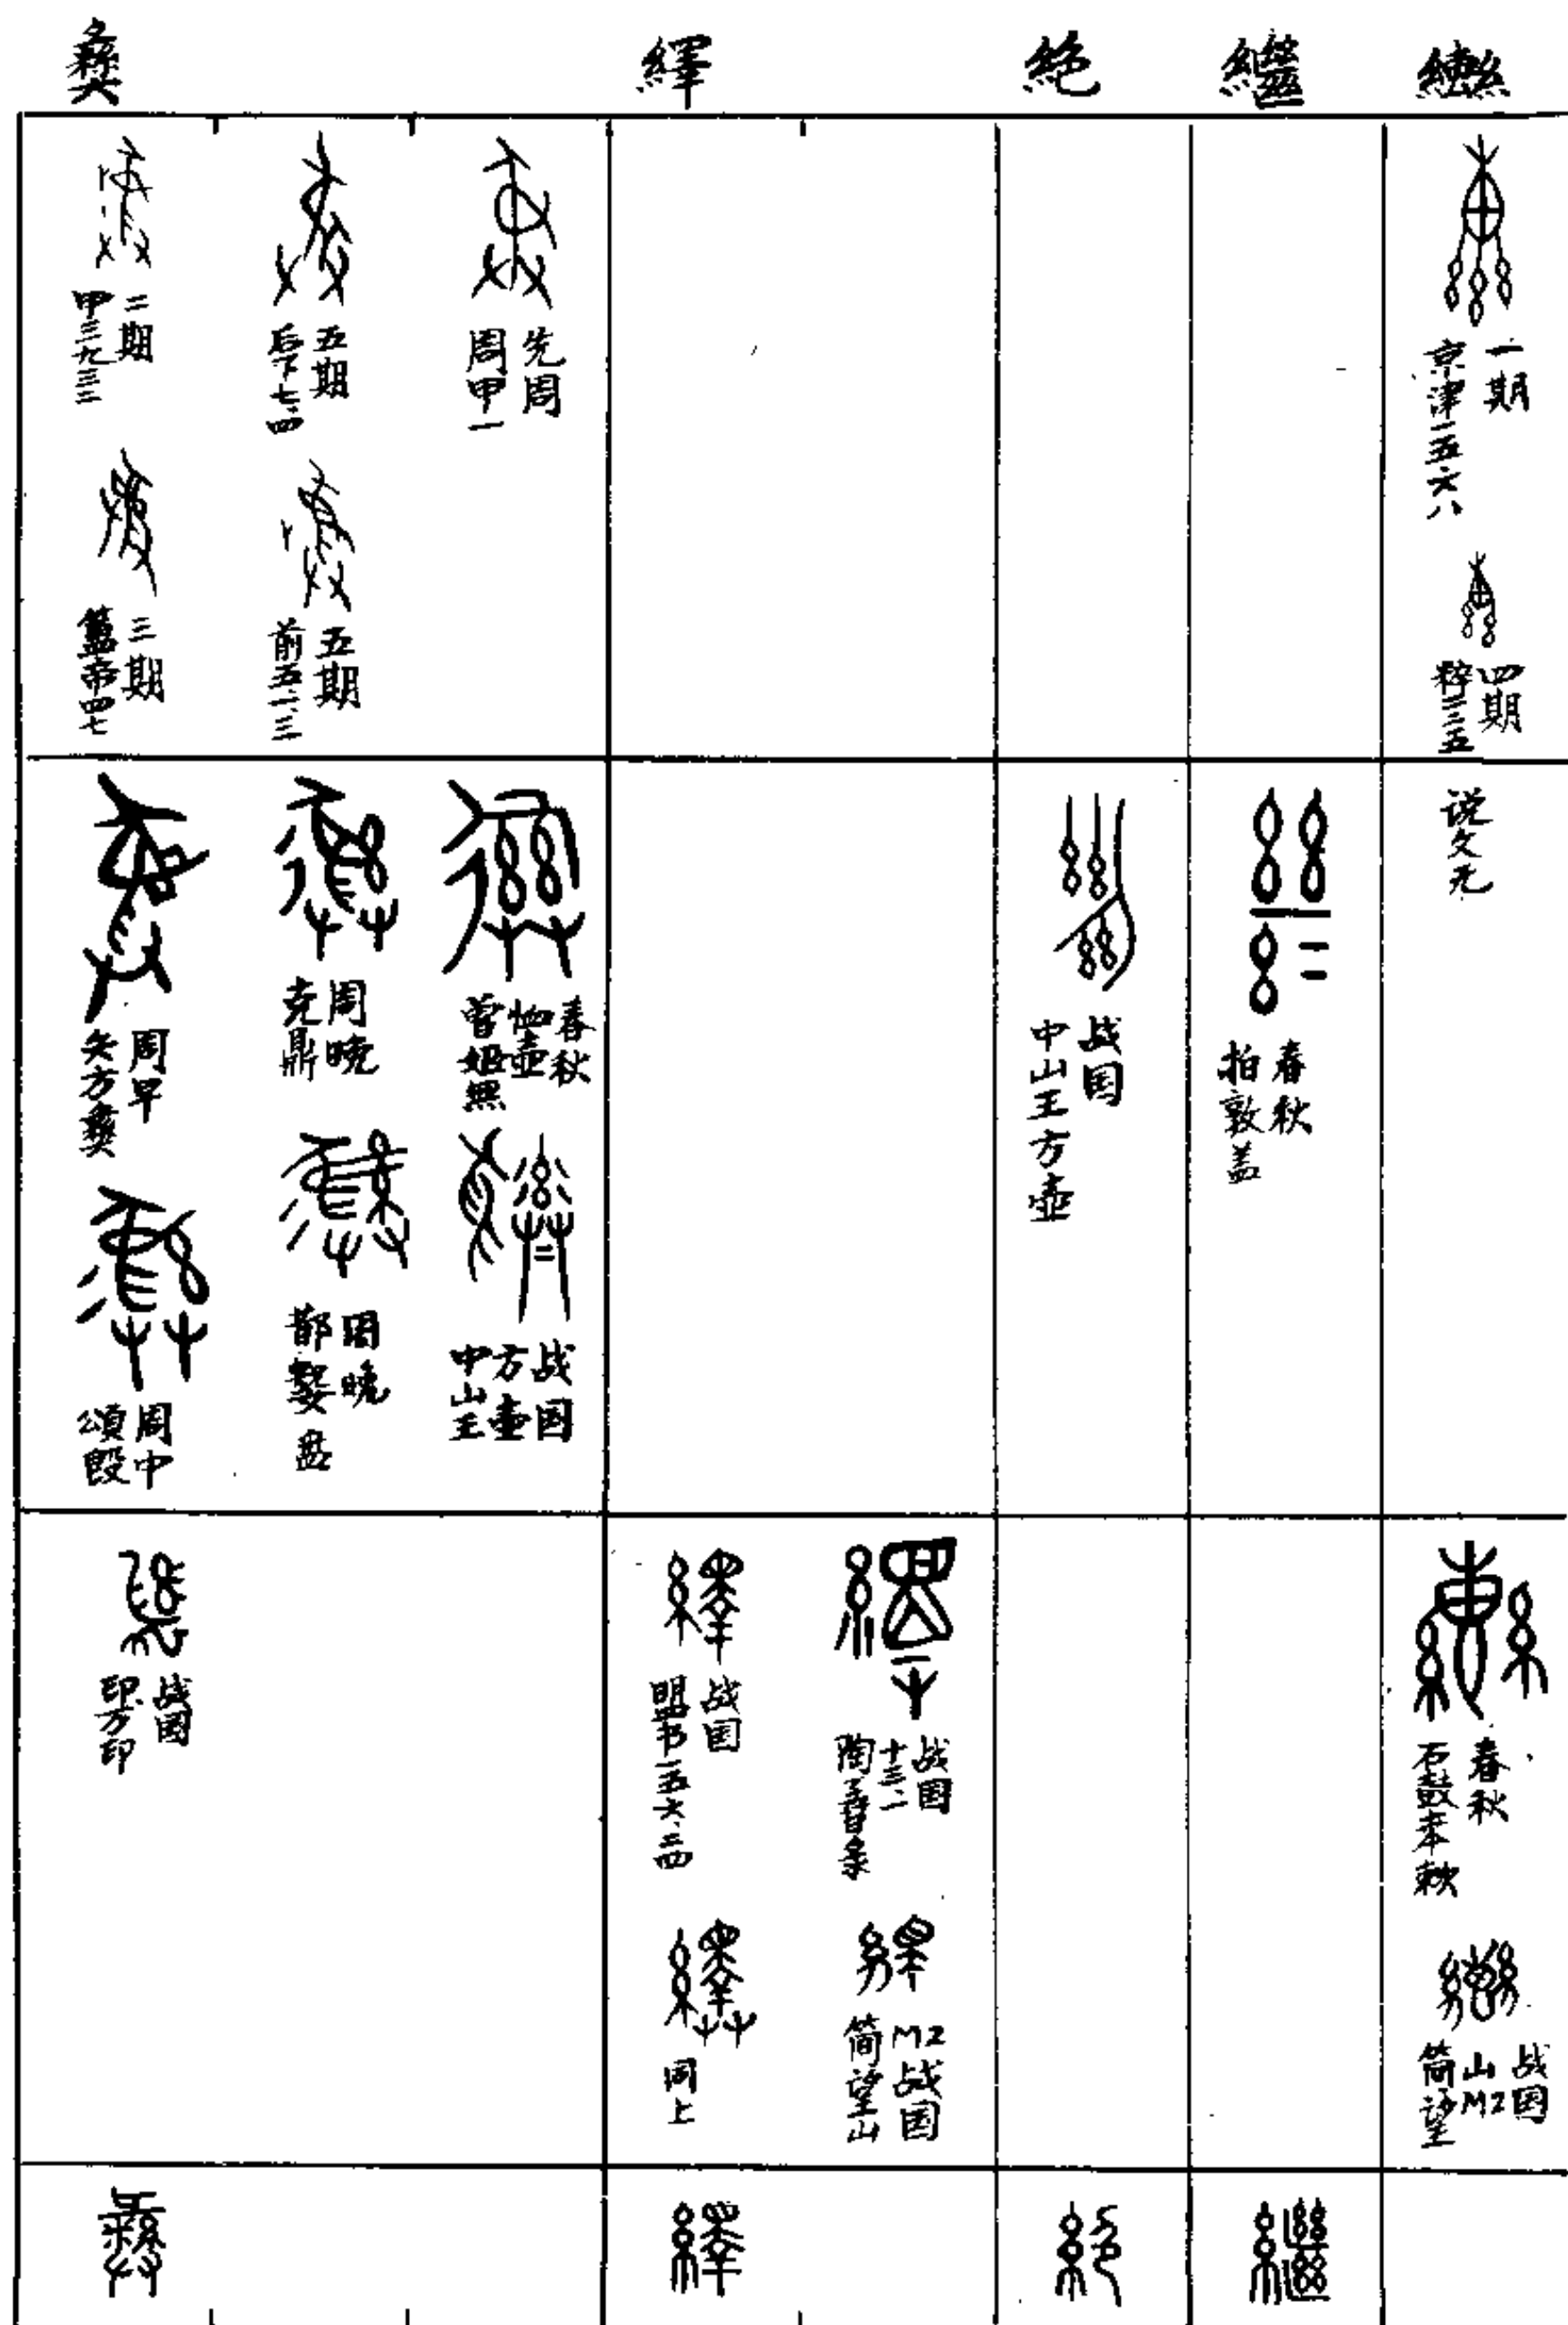 彝 繹 絕 繼
一期
京津二五六八
四期
先周
周甲一
五期
后下七四
五期
前五一三
二期
甲三九三二
三期
簠帝四七
说文无
春秋
拍敦盖
战国
中山王方壶
春秋
曾姬無
卹壶
战国
方壶
中山王
周晚
克鼎
周晚
鄀製盘
周早
矢方彝
周中
頌𣪘
春秋
石鼓
战国
山M2
简望
战国
十三·一
M2战国
简望山
战国
盟书一五六·三四
同上
战国
印方印
繼
絕
繹
彝